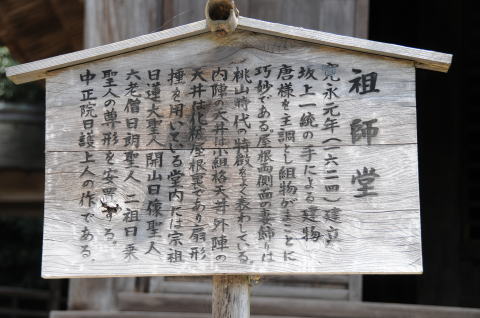 祖師堂
寛永元年(一六二四)建立
坂上一統の手による建物
唐様を主調とし組物がまことに
巧妙である。屋根両側面の妻飾りは
桃山時代の特徴をよく表わしている。
内陣の天井は小組格天井外陣の
天井は化粧屋根裏であり扇形
垂を用いている堂内には宗祖
日蓮大聖人開山日像聖人
六老僧日朗聖人 二祖日乗
聖人の尊形を安置する。
中正院日護上人の作である。